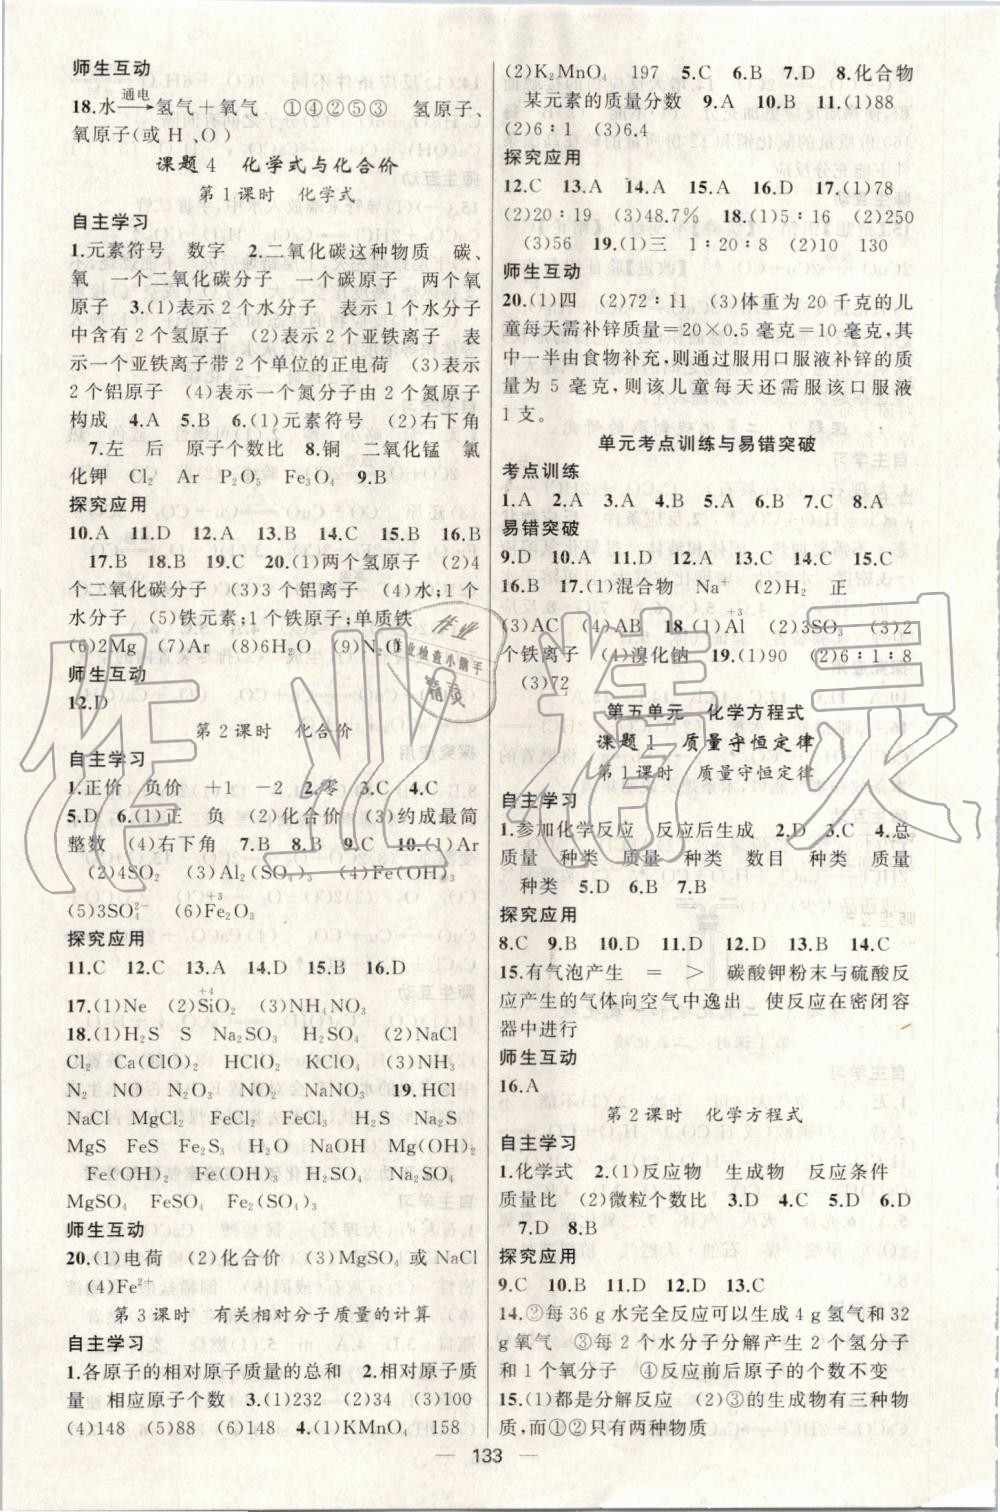 师生互动
18.水 通电→ 氢气＋氧气　①④②⑤③　氢原子、
氧原子(或 H、O)
课题 4　化学式与化合价
第 1 课时　化学式
自主学习
1.元素符号　数字　2.二氧化碳这种物质　碳、
氧　一个二氧化碳分子　一个碳原子　两个氧
原子　3.(1)表示 2 个水分子　表示 1 个水分子
中含有 2 个氢原子　(2)表示 2 个亚铁离子　表
示一个亚铁离子带 2 个单位的正电荷　(3)表示
2 个铝原子　(4)表示一个氮分子由 2 个氮原子
构成　4.A　5.B　6.(1)元素符号　(2)右下角
7.左　后　原子个数比　8.铜　二氧化锰　氯
化钾　Cl₂　Ar　P₂O₅　Fe₃O₄　9.B
探究应用
10.A　11.D　12.A　13.B　14.C　15.B　16.B
17.B　18.B　19.C　20.(1)两个氢原子　(2)4
个二氧化碳分子　(3)3 个铝离子　(4)水;1 个
水分子　(5)铁元素;1 个铁原子;单质铁
(6)2Mg　(7)Ar　(8)6H₂O　(9)N₂O
师生互动
12.D
第 2 课时　化合价
自主学习
1.正价　负价　＋1　－2　2.零　3.C　4.C
5.D　6.(1)正　负　(2)化合价　(3)约成最简
整数　(4)右下角　7.B　8.B　9.C　10.(1)Ar
(2)4SO₂　(3)Al₂(SO₄)₃　(4)Fe(OH)₃
(5)3SO₄²⁻　(6)Fe₂O₃ (+3)
探究应用
11.C　12.C　13.A　14.D　15.B　16.D
17.(1)Ne　(2)SiO₂ (+4)　(3)NH₄NO₃
18.(1)H₂S　S　Na₂SO₃　H₂SO₄　(2)NaCl
Cl₂　Ca(ClO)₂　HClO₃　KClO₄　(3)NH₃
N₂　NO　N₂O₃　NO₂　NaNO₃　19.HCl
NaCl　MgCl₂　FeCl₂　FeCl₃　H₂S　Na₂S
MgS　FeS　Fe₂S₃　H₂O　NaOH　Mg(OH)₂
Fe(OH)₂　Fe(OH)₃　H₂SO₄　Na₂SO₄
MgSO₄　FeSO₄　Fe₂(SO₄)₃
师生互动
20.(1)电荷　(2)化合价　(3)MgSO₄ 或 NaCl
(4)Fe²⁺
第 3 课时　有关相对分子质量的计算
自主学习
1.各原子的相对原子质量的总和　2.相对原子质
量　相应原子个数　3.(1)232　(2)34　(3)100
(4)148　(5)88　(6)148　4.(1)KMnO₄　158
(2)K₂MnO₄　197　5.C　6.B　7.D　8.化合物
某元素的质量分数　9.A　10.B　11.(1)88
(2)6∶1　(3)6.4
探究应用
12.C　13.A　14.A　15.A　16.D　17.(1)78
(2)20∶19　(3)48.7%　18.(1)5∶16　(2)250
(3)56　19.(1)三　1∶20∶8　(2)10　130
师生互动
20.(1)四　(2)72∶11　(3)体重为 20 千克的儿
童每天需补锌质量＝20×0.5 毫克＝10 毫克,其
中一半由食物补充,则通过服用口服液补锌的质
量为 5 毫克,则该儿童每天还需服该口服液
1 支。
单元考点训练与易错突破
考点训练
1.A　2.A　3.A　4.B　5.A　6.B　7.C　8.A
易错突破
9.D　10.A　11.D　12.A　13.C　14.C　15.C
16.B　17.(1)混合物　Na⁺　(2)H₂　正
(3)AC　(4)AB　18.(1)Al (+3)　(2)3SO₃　(3)2
个铁离子　(4)溴化钠　19.(1)90　(2)6∶1∶8
(3)72
第五单元　化学方程式
课题 1　质量守恒定律
第 1 课时　质量守恒定律
自主学习
1.参加化学反应　反应后生成　2.D　3.C　4.总
质量　种类　质量　种类　数目　种类　质量
种类　5.D　6.B　7.B
探究应用
8.C　9.B　10.D　11.D　12.D　13.B　14.C
15.有气泡产生　＝　＞　碳酸钾粉末与硫酸反
应产生的气体向空气中逸出　使反应在密闭容
器中进行
师生互动
16.A
第 2 课时　化学方程式
自主学习
1.化学式　2.(1)反应物　生成物　反应条件
质量比　(2)微粒个数比　3.D　4.C　5.D　6.D
7.D　8.B
探究应用
9.C　10.B　11.D　12.D　13.C
14.②每 36 g 水完全反应可以生成 4 g 氢气和 32
g 氧气　③每 2 个水分子分解产生 2 个氢分子
和 1 个氧分子　④反应前后原子的个数不变
15.(1)都是分解反应　(2)③的生成物有三种物
质,而①②只有两种物质
— 133 —
作业
作业检查小帮手
精灵
作业精灵